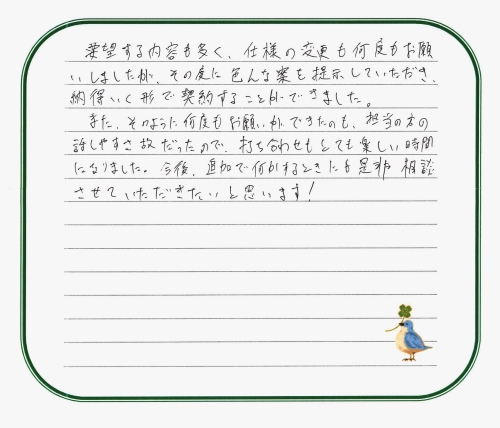 要望する内容も多く、仕様の変更も何度もお願
いしましたが、その度に色んな案を提示していただき、
納得いく形で契約することができました。
また、そのように何度もお願いができたのも、担当の方の
話しやすさ故だったので、打ち合わせもとても楽しい時間
になりました。今後、追加で何かするときにも是非相談
させていただきたいと思います!